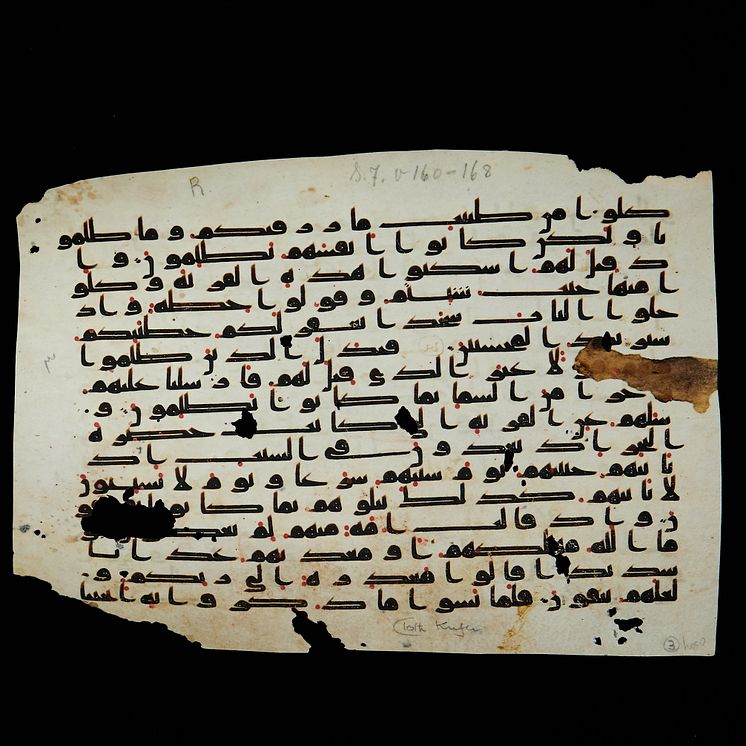 R S.7. v 160-168
كلوا من طيبت ما رزقنكم وما ظلمو
نا ولكن كانوا انفسهم يظلمون وا
ذ قيل لهم اسكنوا هذه القرية وكلو
ا منها حيث شئتم وقولوا حطة واد
خلوا الباب سجدا نغفر لكم خطيتكم
سنزيد المحسنين فبدل الذين ظلموا
قولا غير الذي قيل لهم فارسلنا عليهم
رجزا من السما بما كانوا يظلمون و
سلهم عن القرية التي كانت حضرة
البحر اذ يعدون في السبت اذ
تاتيهم حيتنهم يوم سبتهم شرعا ويوم لا يسبتون
لا تاتيهم كذلك نبلوهم بما كانوا يفسقو
ن واذ قالت امة منهم لم تعظون قو
ما الله مهلكهم او معذبهم عذابا
شديدا قالوا معذرة الى ربكم و
لعلهم يتقون فلما نسوا ما ذكروا به انجينا